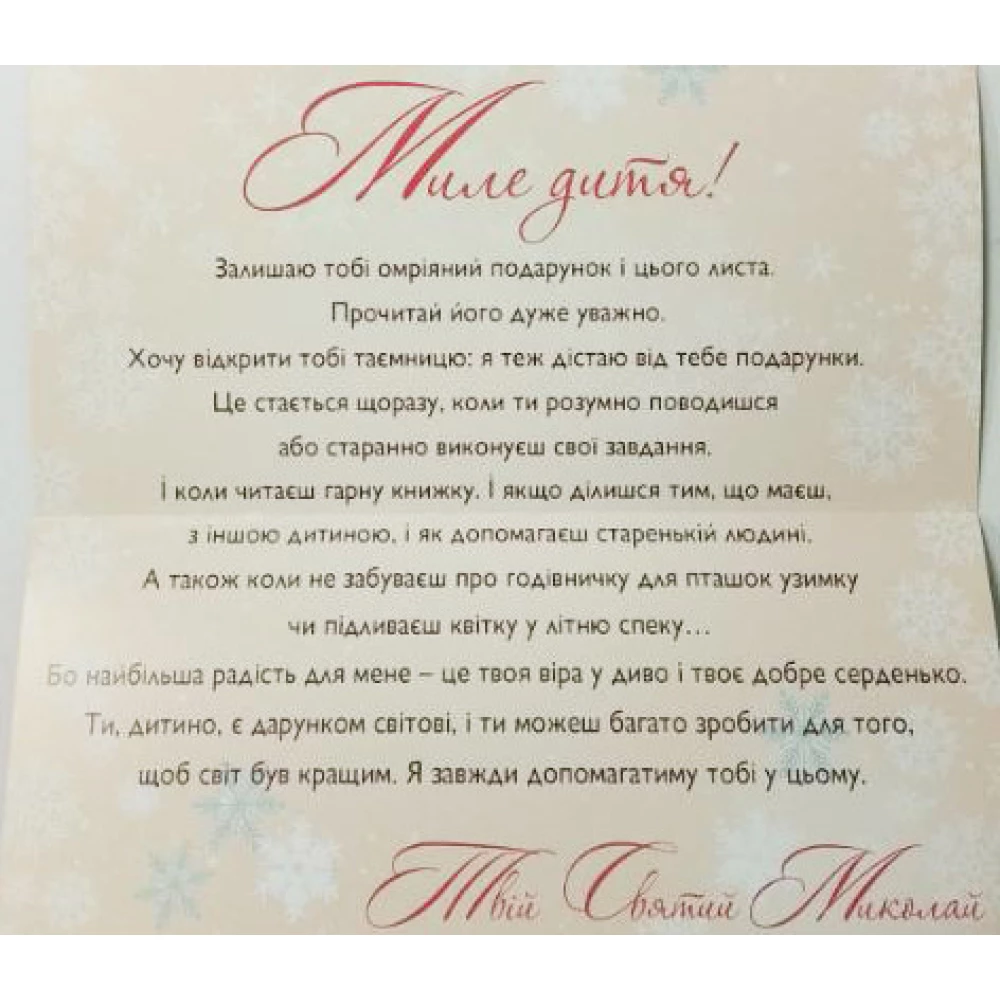 Миле дитя!
Залишаю тобі омріяний подарунок і цього листа.
Прочитай його дуже уважно.
Хочу відкрити тобі таємницю: я теж дістаю від тебе подарунки.
Це стається щоразу, коли ти розумно поводишся
або старанно виконуєш свої завдання.
І коли читаєш гарну книжку. І якщо ділишся тим, що маєш,
з іншою дитиною, і як допомагаєш старенькій людині.
А також коли не забуваєш про годівничку для пташок узимку
чи підливаєш квітку у літню спеку...
Бо найбільша радість для мене – це твоя віра у диво і твоє добре серденько.
Ти, дитино, є дарунком світові, і ти можеш багато зробити для того,
щоб світ був кращим. Я завжди допомагатиму тобі у цьому.
Твій Святий Миколай